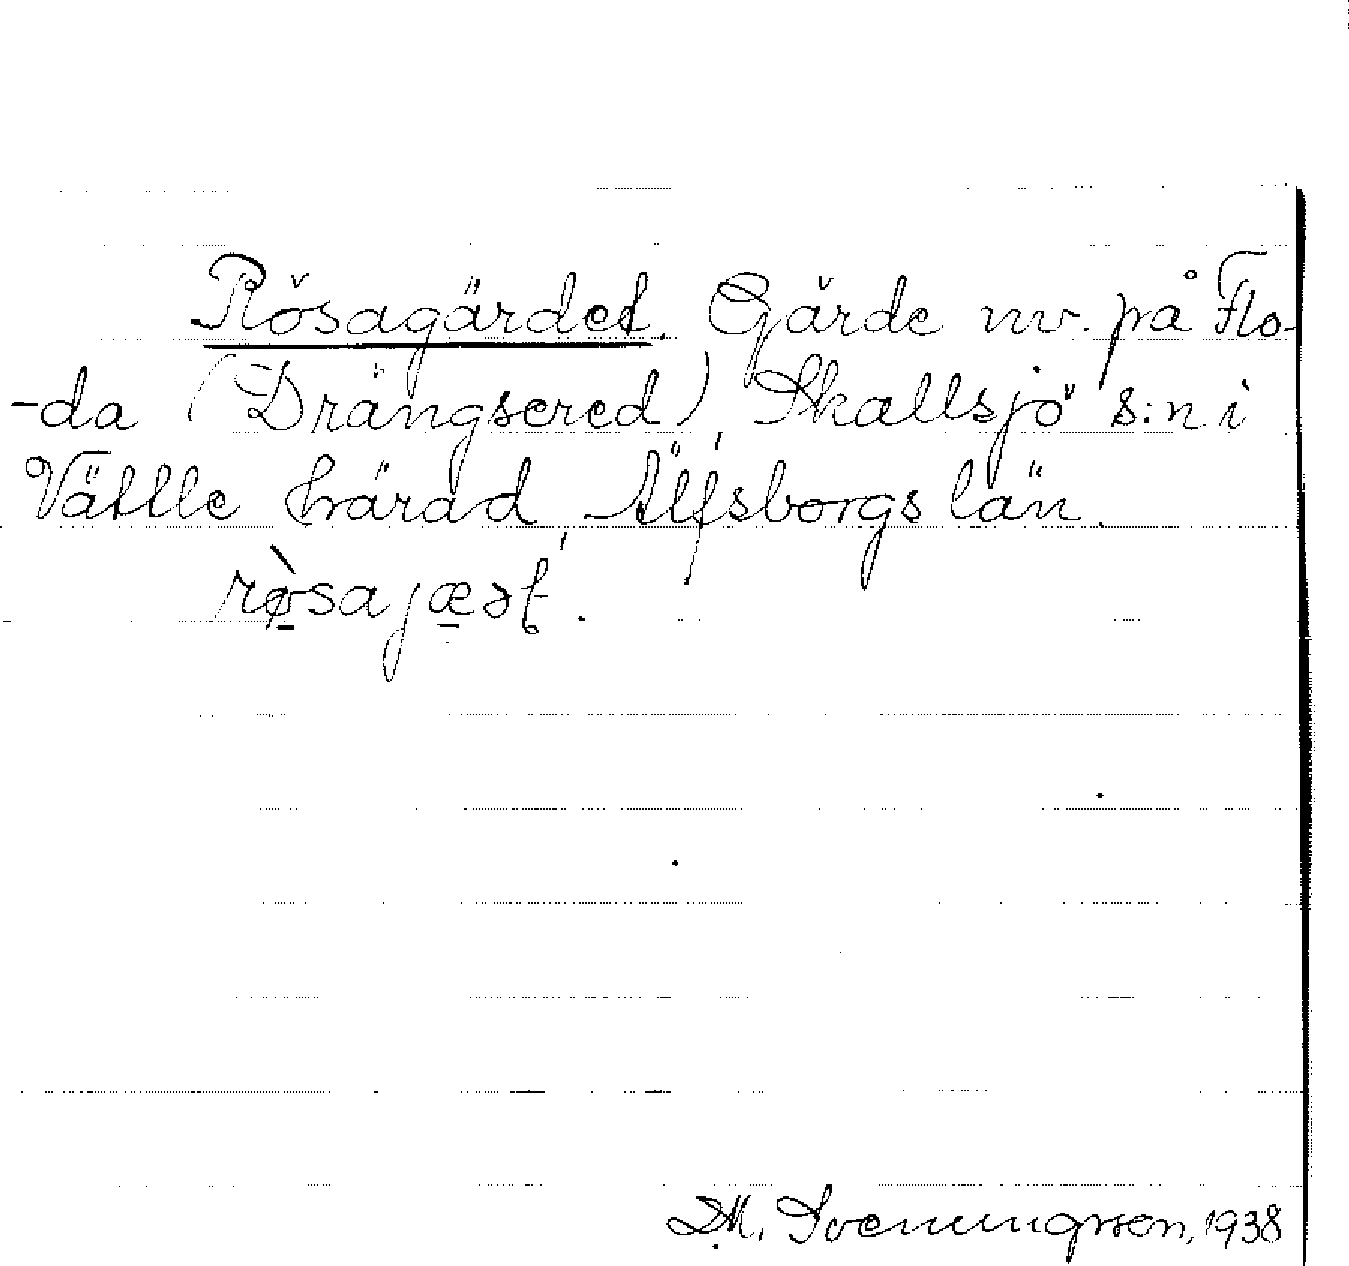 Rösagärdet. Gärde nv. på Flo-
-da (Drängsered), Skallsjö s:n i
Vättle härad, Älfsborgs län.
rø̀sajæət.
D.M. Svenungsson, 1938